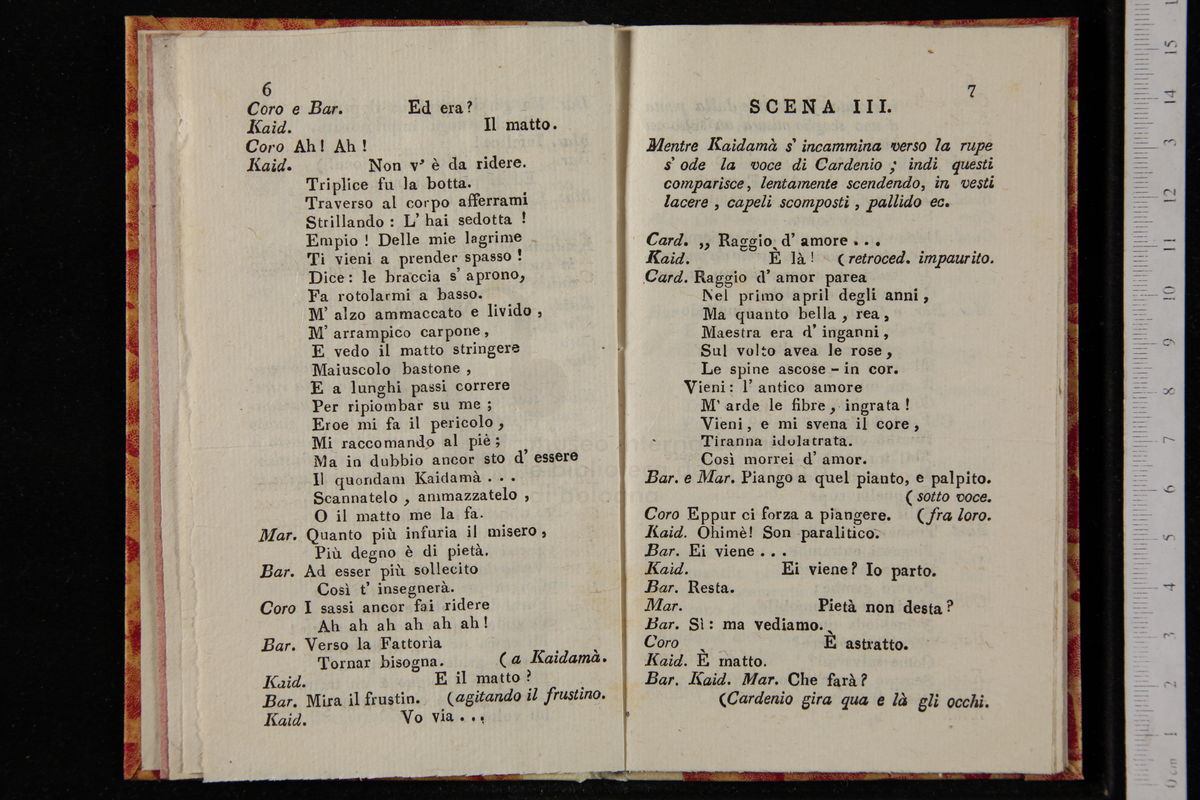 6
Coro e Bar. Ed era?
Kaid. Il matto.
Coro Ah! Ah!
Kaid. Non v' è da ridere.
Triplice fu la botta.
Traverso al corpo afferrami
Strillando: L' hai sedotta!
Empio! Delle mie lagrime
Ti vieni a prender spasso!
Dice: le braccia s' aprono,
Fa rotolarmi a basso.
M' alzo ammaccato e livido,
M' arrampico carpone,
E vedo il matto stringere
Maiuscolo bastone,
E a lunghi passi correre
Per ripiombar su me;
Eroe mi fa il pericolo,
Mi raccomando al piè;
Ma in dubbio ancor sto d' essere
Il quondam Kaidamà . . .
Scannatelo, ammazzatelo,
O il matto me la fa.
Mar. Quanto più infuria il misero,
Più degno è di pietà.
Bar. Ad esser più sollecito
Così t' insegnerà.
Coro I sassi ancor fai ridere
Ah ah ah ah ah ah!
Bar. Verso la Fattorìa
Tornar bisogna. (a Kaidamà.
Kaid. E il matto?
Bar. Mira il frustin. (agitando il frustino.
Kaid. Vo via . . .
7
SCENA III.
Mentre Kaidamà s' incammina verso la rupe
s' ode la voce di Cardenio; indi questi
comparisce, lentamente scendendo, in vesti
lacere, capeli scomposti, pallido ec.
Card. ,, Raggio d' amore . . .
Kaid. È là! (retroced. impaurito.
Card. Raggio d' amor parea
Nel primo april degli anni,
Ma quanto bella, rea,
Maestra era d' inganni,
Sul volto avea le rose,
Le spine ascose - in cor.
Vieni: l' antico amore
M' arde le fibre, ingrata!
Vieni, e mi svena il core,
Tiranna idolatrata.
Così morrei d' amor.
Bar. e Mar. Piango a quel pianto, e palpito.
(sotto voce.
Coro Eppur ci forza a piangere. (fra loro.
Kaid. Ohimè! Son paralitico.
Bar. Ei viene . . .
Kaid. Ei viene? Io parto.
Bar. Resta.
Mar. Pietà non desta?
Bar. Sì: ma vediamo.
Coro È astratto.
Kaid. È matto.
Bar. Kaid. Mar. Che farà?
(Cardenio gira qua e là gli occhi.